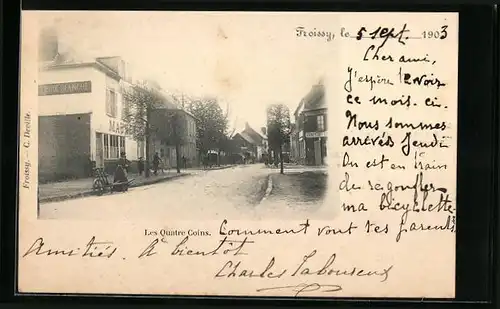 Froissy, le 5 sept. 1903
Cher ami,
J'espère te voir
ce mois-ci.
Nous sommes
arrivés Jeudi
On est en train
de regonfler
ma bicyclette.
Comment vont tes parents?
Amitiés. A bientôt
Charles Laboureux
Les Quatre Coins.
Froissy. — C. Deville.